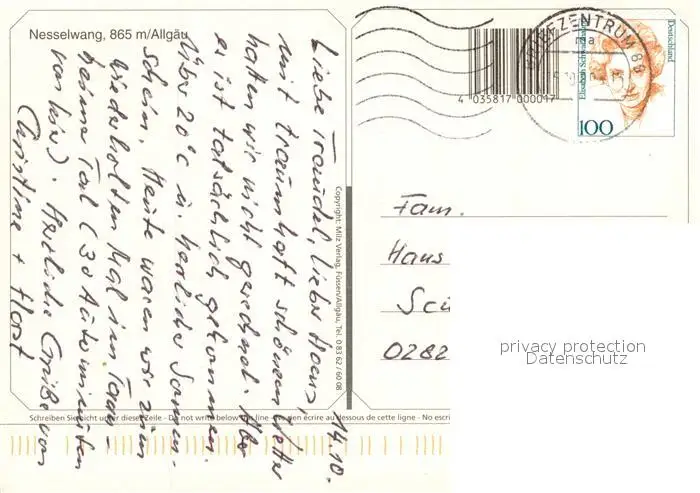 Nesselwang, 865 m/Allgäu
14.10.
Liebe Traudel, lieber Hans,
mit traumhaft schönem Wetter
hatten wir nicht gerechnet. Aber
es ist tatsächlich gekommen.
Über 20°C u. herrliche Sonnen-
schein. Heute waren wir zum
wiederholten Mal im Tann-
heimer Tal (30 Autominuten
von hier). Herzliche Grüße von
Christine + Horst
Copyright: Milz Verlag, Füssen/Allgäu, Tel. 0 83 62 / 60 08
4 035817 000047
BRIEFZENTRUM 88
Deutschland
Elisabeth Schwarzhaupt
100
Fam.
Hans
0282
privacy protection
Datenschutz
Schreiben Sie nicht unter dieser Zeile - Do not write below the line - ne rien écrire au dessous de cette ligne - No escri